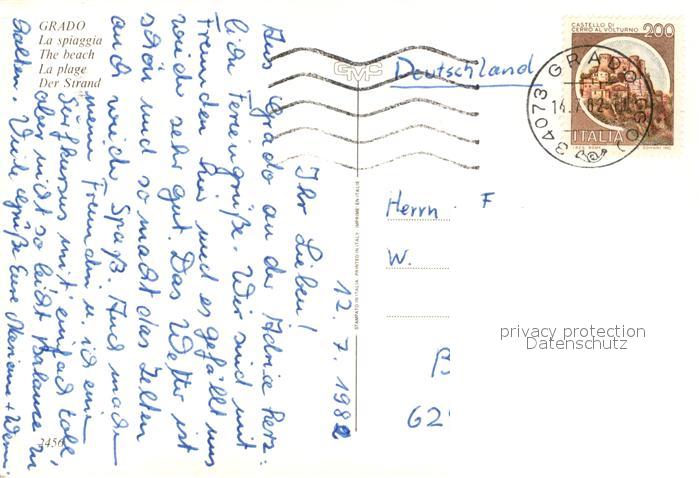 GRADO
La spiaggia
The beach
La plage
Der Strand
12. 7. 1982
Ihr Lieben!
Aus Grado an der Adria herz-
liche Feriengrüße. Wir sind mit
Freunden hier und es gefällt uns
wirklich sehr gut. Das Wetter ist
schön und so macht das Zelten
auch Spaß. Und
meine Freundin u. ich einen
Surfkursus mit, einfach toll,
aber nicht so leicht Balance zu
halten. Viele Grüße Eure +
2456
STAMPATO IN ITALIA - PRINTED IN ITALY - IMPRIME EN ITALIE
GMC
Deutschland
CASTELLO DI
CERRO AL VOLTURNO
200
ITALIA
34073 GRADO
14.7.82
Herrn F
W.
B
62
privacy protection
Datenschutz